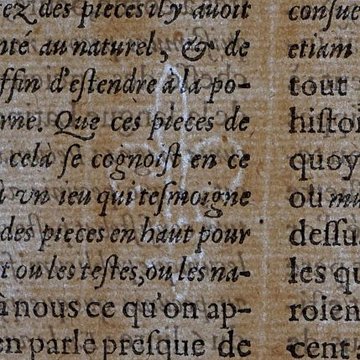 rez des pieces il y auoit
nté au naturel, & de
ffin d'estendre à la po-
rme. Que ces pieces de
celà se cognoist en ce
à vn ieu qui tesmoigne
des pieces en haut pour
t ou les testes, ou les na-
à nous ce qu'on ap-
en parle presque de
consue
etiam
tout
histor
quoy
ou mu
dessu
les qu
roien
cent l